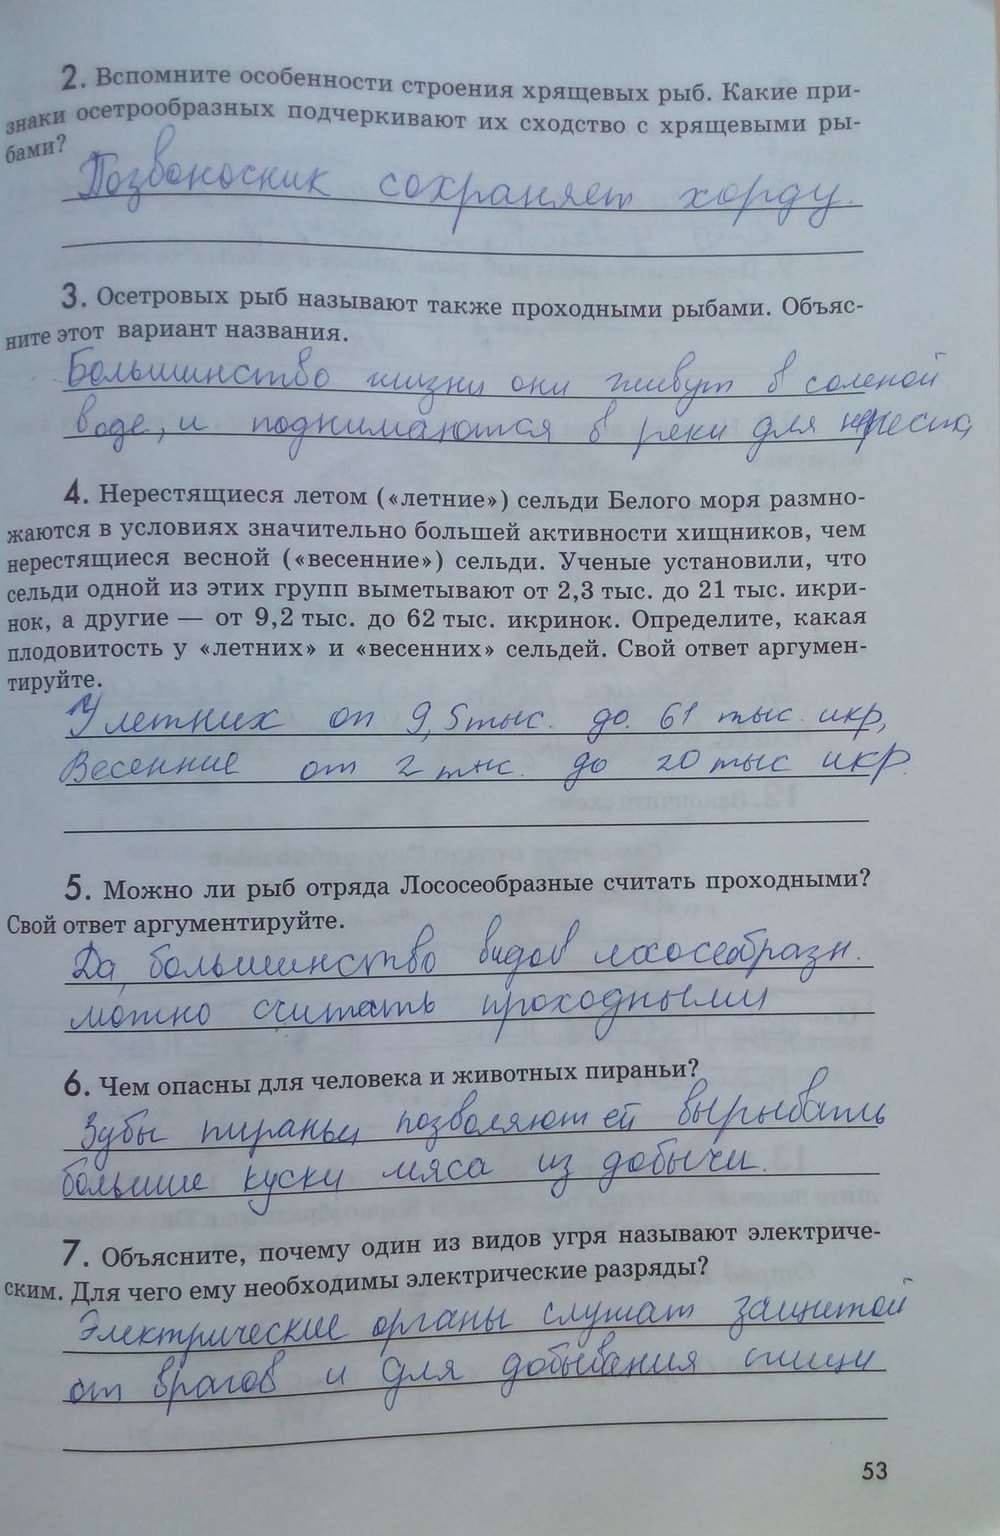 2. Вспомните особенности строения хрящевых рыб. Какие при-
знаки осетрообразных подчеркивают их сходство с хрящевыми ры-
бами?
Позвоносник сохраняет хорду.
3. Осетровых рыб называют также проходными рыбами. Объяс-
ните этот вариант названия.
Большинство жизни они живут в соленой
воде, и поднимаются в реки для нереста,
4. Нерестящиеся летом («летние») сельди Белого моря размно-
жаются в условиях значительно большей активности хищников, чем
нерестящиеся весной («весенние») сельди. Ученые установили, что
сельди одной из этих групп выметывают от 2,3 тыс. до 21 тыс. икри-
нок, а другие — от 9,2 тыс. до 62 тыс. икринок. Определите, какая
плодовитость у «летних» и «весенних» сельдей. Свой ответ аргумен-
тируйте.
У летних от 9,5 тыс. до. 61 тыс. икр,
Весенние от 2 тыс. до 20 тыс икр.
5. Можно ли рыб отряда Лососеобразные считать проходными?
Свой ответ аргументируйте.
Да, большинство видов лососеобразн.
можно считать проходными
6. Чем опасны для человека и животных пираньи?
Зубы пираньи позволяют ей вырывать
большие куски мяса из добычи.
7. Объясните, почему один из видов угря называют электриче-
ским. Для чего ему необходимы электрические разряды?
Электрические органы служат защитой
от врагов и для добывания пищи
53